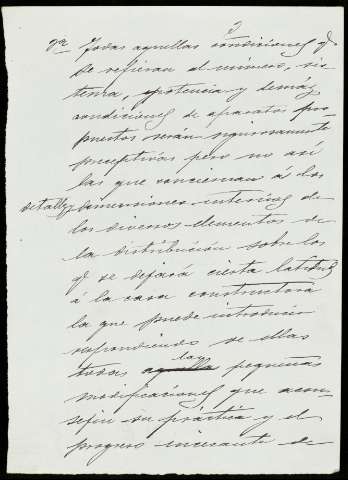 3
9ª Todas aquellas condiciones q.
se refieran al número, sis-
tema, potencia y demás
condiciones de aparatos pro-
puestos serán rigurosamente
preceptivas pero no así
las que conciernan á los
detalles y dimensiones interiores de
los diversos elementos de
la distribución sobre los
q. se dejará cierta latitud
á la casa constructora
la que puede introducir
respondiendo de ellas
todas aquella las pequeñas
modificaciones que acon-
sejen su práctica y el
progreso incesante de